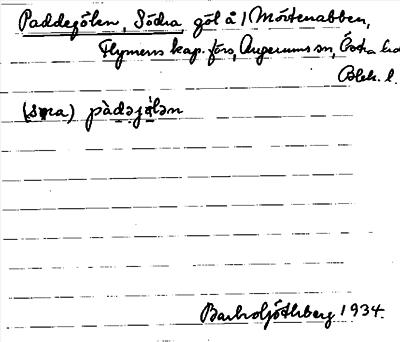 Paddegölen, Södra, göl å 1 Mörtenabben,
Flymens kap. förs, Augerums sn, Östra hd
Blek. l.
(søra) pàdəjølən
1934.